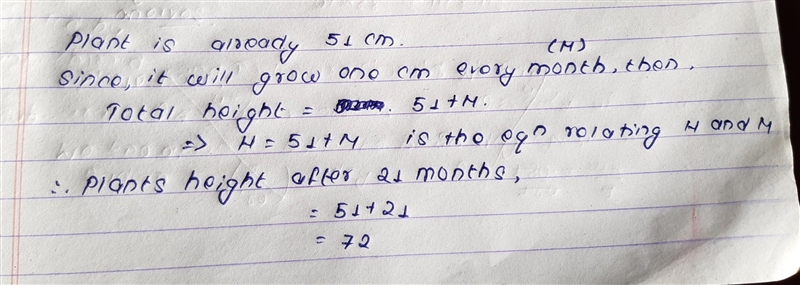 Plant is already 51 cm.
(M)
Since, it will grow one cm every month, then,
Total height = 51+M.
=> H = 51+M is the eqn relating H and M
∴ Plants height after 21 months,
= 51+21
= 72